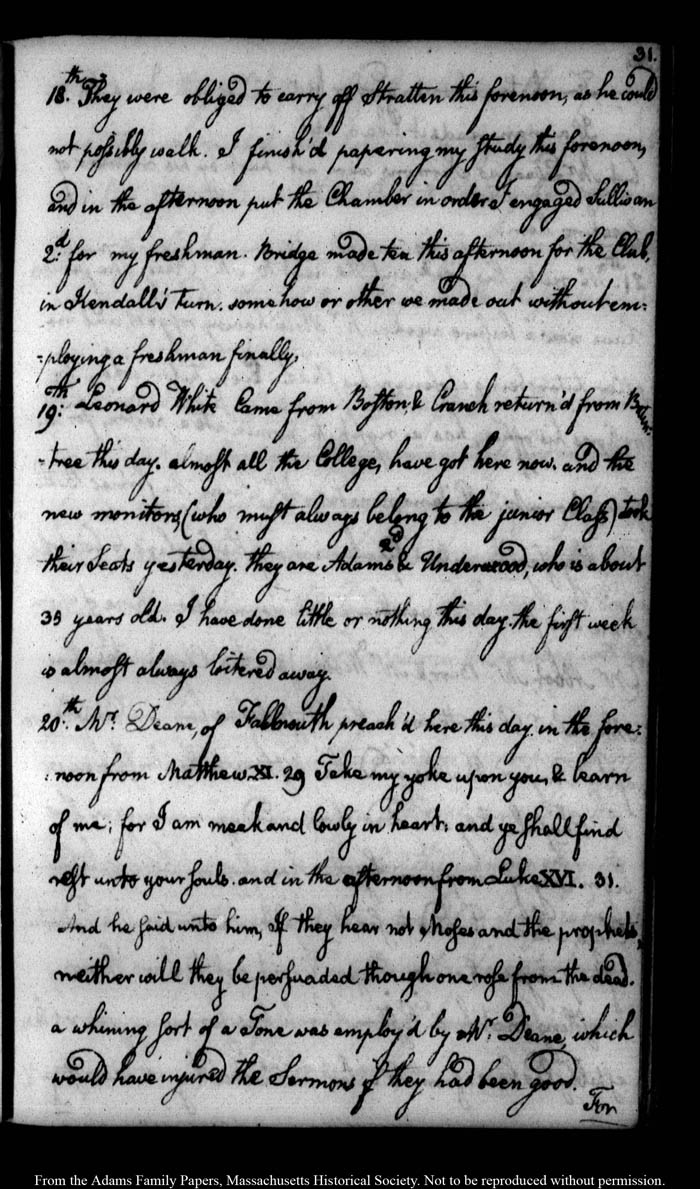 31.
18.th They were obliged to carry off Stratten this forenoon, as he could
not possibly walk. I finish'd papering my study this forenoon,
and in the afternoon put the Chamber in order I engaged Sullivan
2.d for my freshman. Bridge made tea this afternoon for the Club,
in Kendall's turn. somehow or other we made out without em:
:ploying a freshman finally.
19:th Leonard White Came from Boston, & Cranch return'd from Brain:
:tree this day. almost all the College, have got here now. and the
new monitors, (who must always belong to the junior Class) took
their Seats yesterday. they are Adams 2d & Underwood, who is about
35 years old. I have done little or nothing this day. the first week
is almost always loitered away.
20.th Mr. Deane, of Falmouth preach'd here this day. in the fore:
:noon from Matthew XI. 29 Take my yoke upon you, & learn
of me; for I am meek and lowly in heart: and ye shall find
rest unto your souls. and in the afternoon from Luke XVI. 31.
And he said unto him, If they hear not Moses and the prophets,
neither will they be persuaded though one rose from the dead.
a whining sort of a Tone was employ'd by Mr. Deane, which
would have injured the Sermons if they had been good.
For
From the Adams Family Papers, Massachusetts Historical Society. Not to be reproduced without permission.